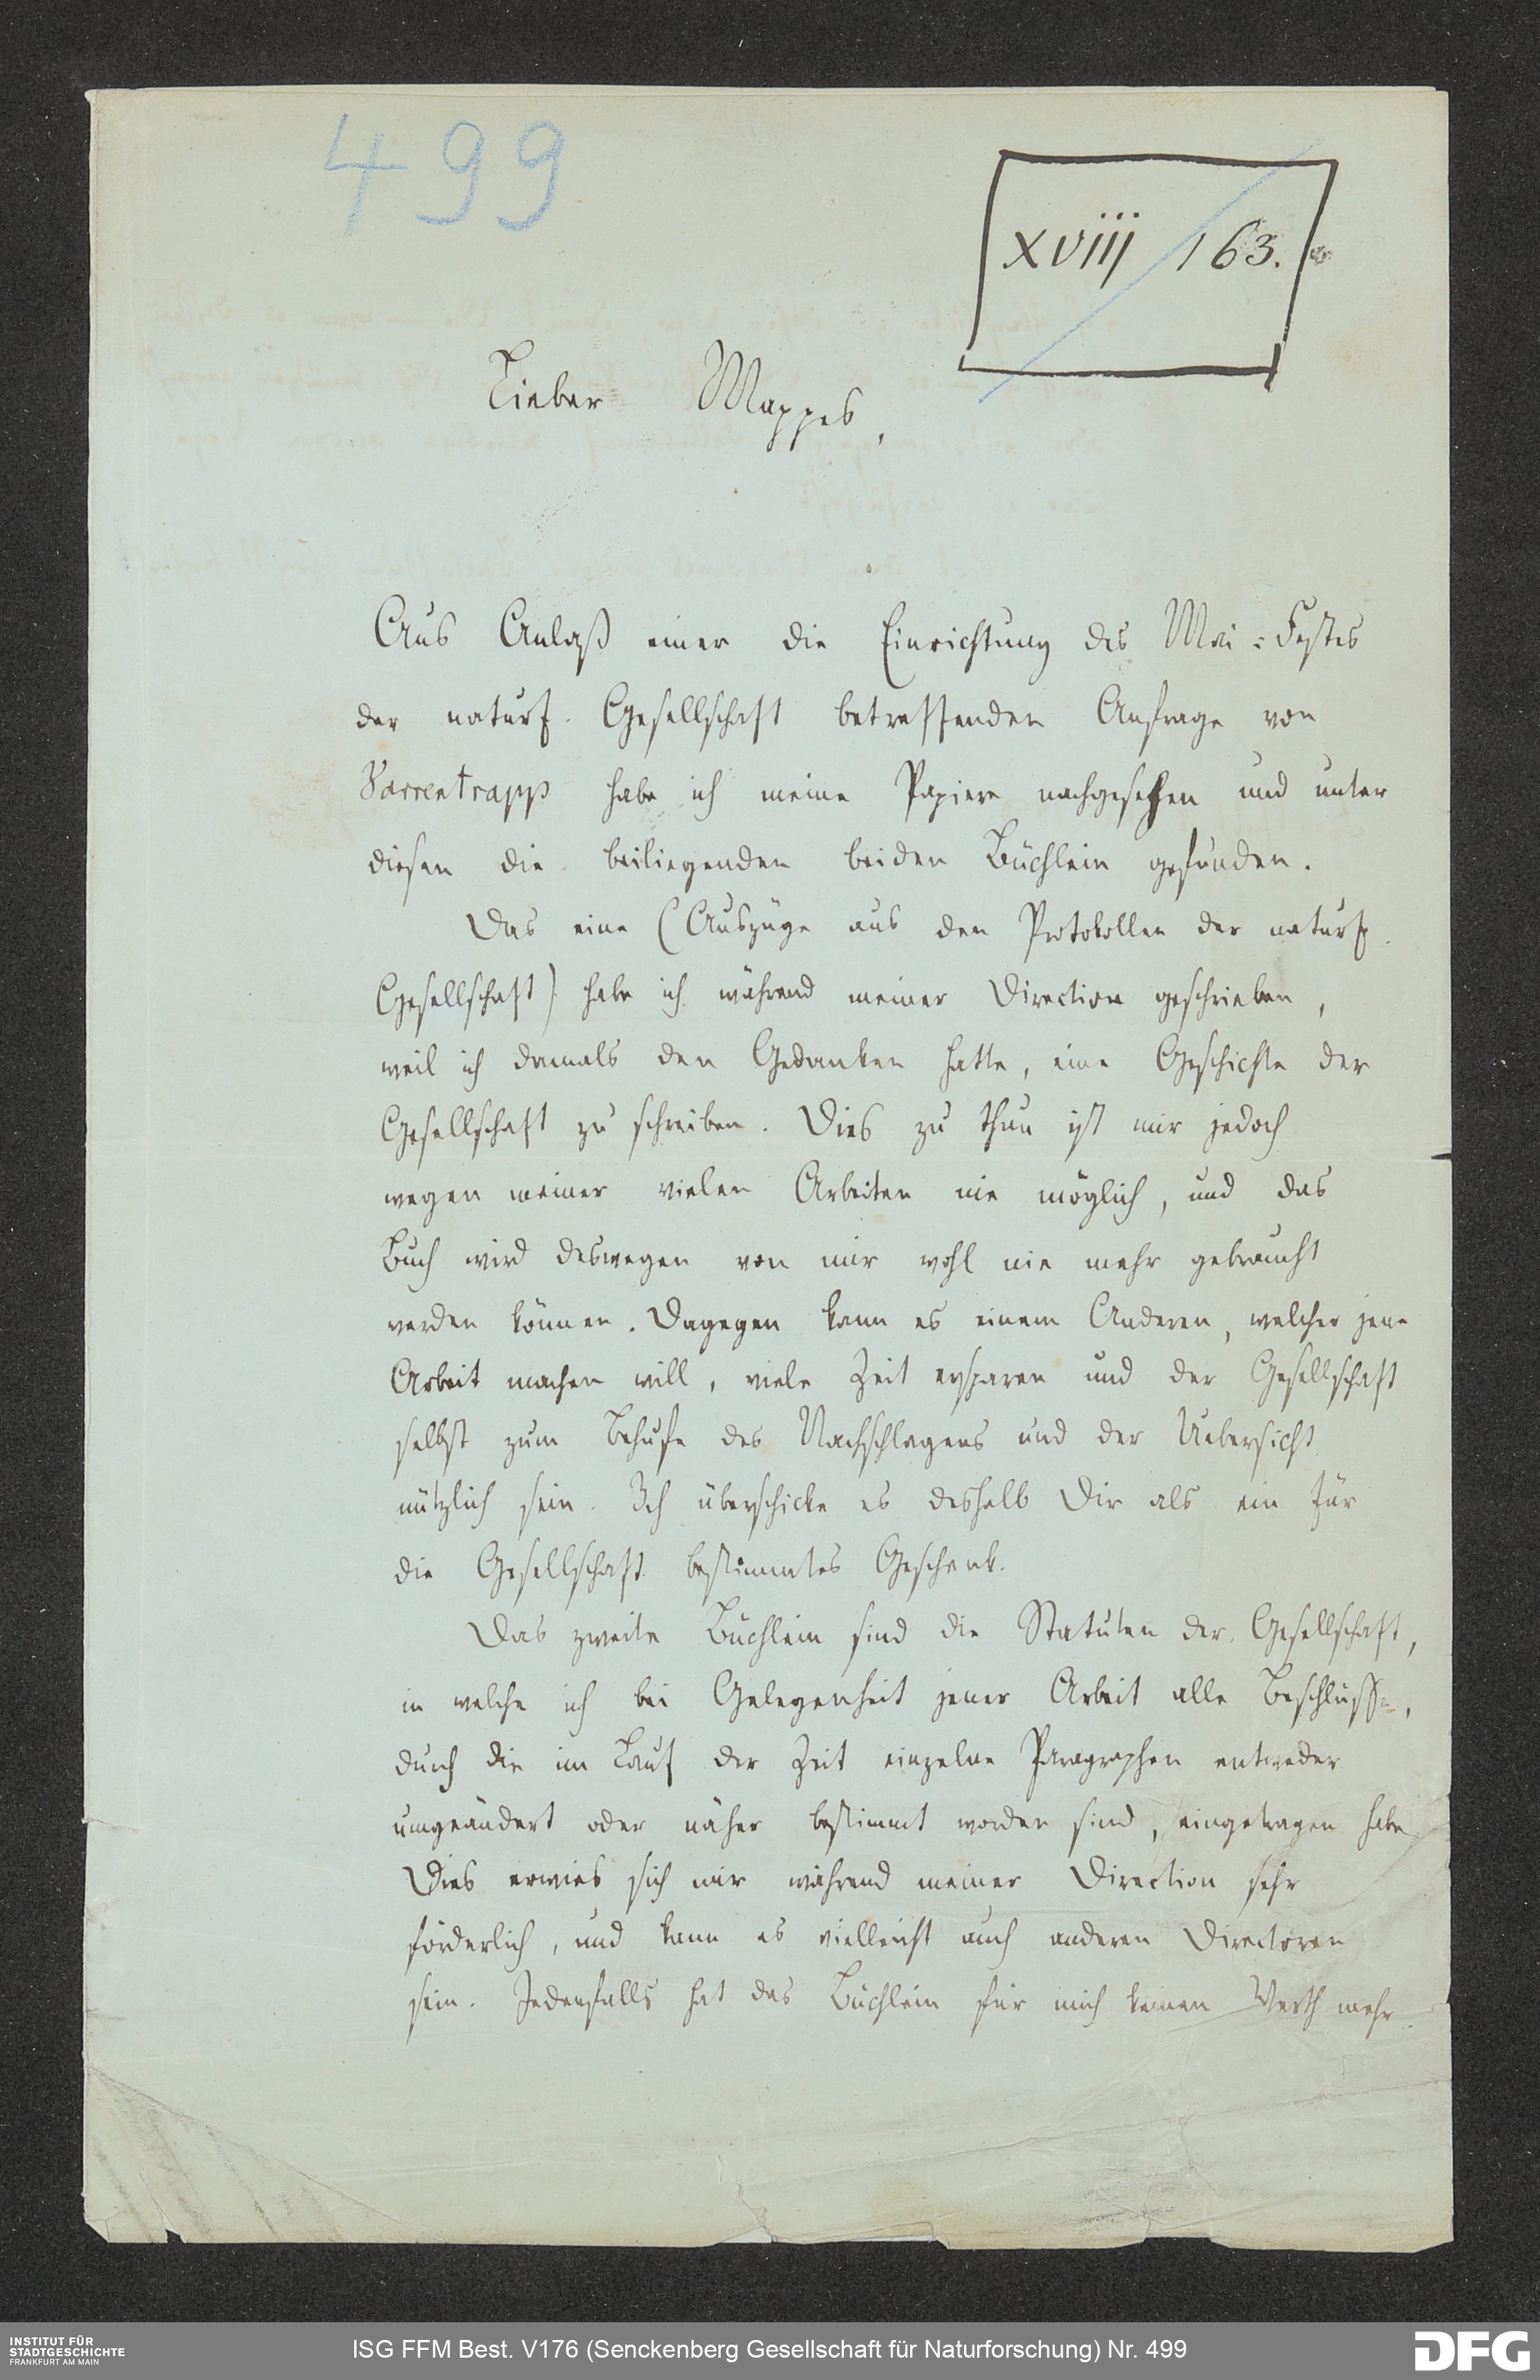 499
XVIII / 163.
Lieber Mappes,
Aus Anlaß einer die Einrichtung des Mai=Festes
der naturf. Gesellschaft betreffenden Anfrage von
Varrentrapp habe ich meine Papiere nachgesehen und unter
diesen die beiliegenden beiden Büchlein gefunden.
Das eine (Auszüge aus den Protokollen der naturf.
Gesellschaft) habe ich während meiner Direction geschrieben,
weil ich damals den Gedanken hatte, eine Geschichte der
Gesellschaft zu schreiben. Dies zu thun ist mir jedoch
wegen meiner vielen Arbeiten nie möglich, und das
Buch wird deswegen von mir wohl nie mehr gebraucht
werden können. Dagegen kann es einem Anderen, welcher jene
Arbeit machen will, viele Zeit ersparen und der Gesellschaft
selbst zum Behufe des Nachschlagens und der Uebersicht
nützlich sein. Ich überschicke es deshalb Dir als ein für
die Gesellschaft bestimmtes Geschenk.
Das zweite Büchlein sind die Statuten der Gesellschaft,
in welche ich bei Gelegenheit jener Arbeit alle Beschlüsse,
durch die im Lauf der Zeit einzelne Paragraphen entweder
umgeändert oder näher bestimmt worden sind, eingetragen habe
Dies erwies sich mir während meiner Direction sehr
förderlich, und kann es vielleicht auch anderen Directoren
sein. Jedenfalls hat das Büchlein für mich keinen Werth mehr.
INSTITUT FÜR
STADTGESCHICHTE
FRANKFURT AM MAIN
ISG FFM Best. V176 (Senckenberg Gesellschaft für Naturforschung) Nr. 499
DFG